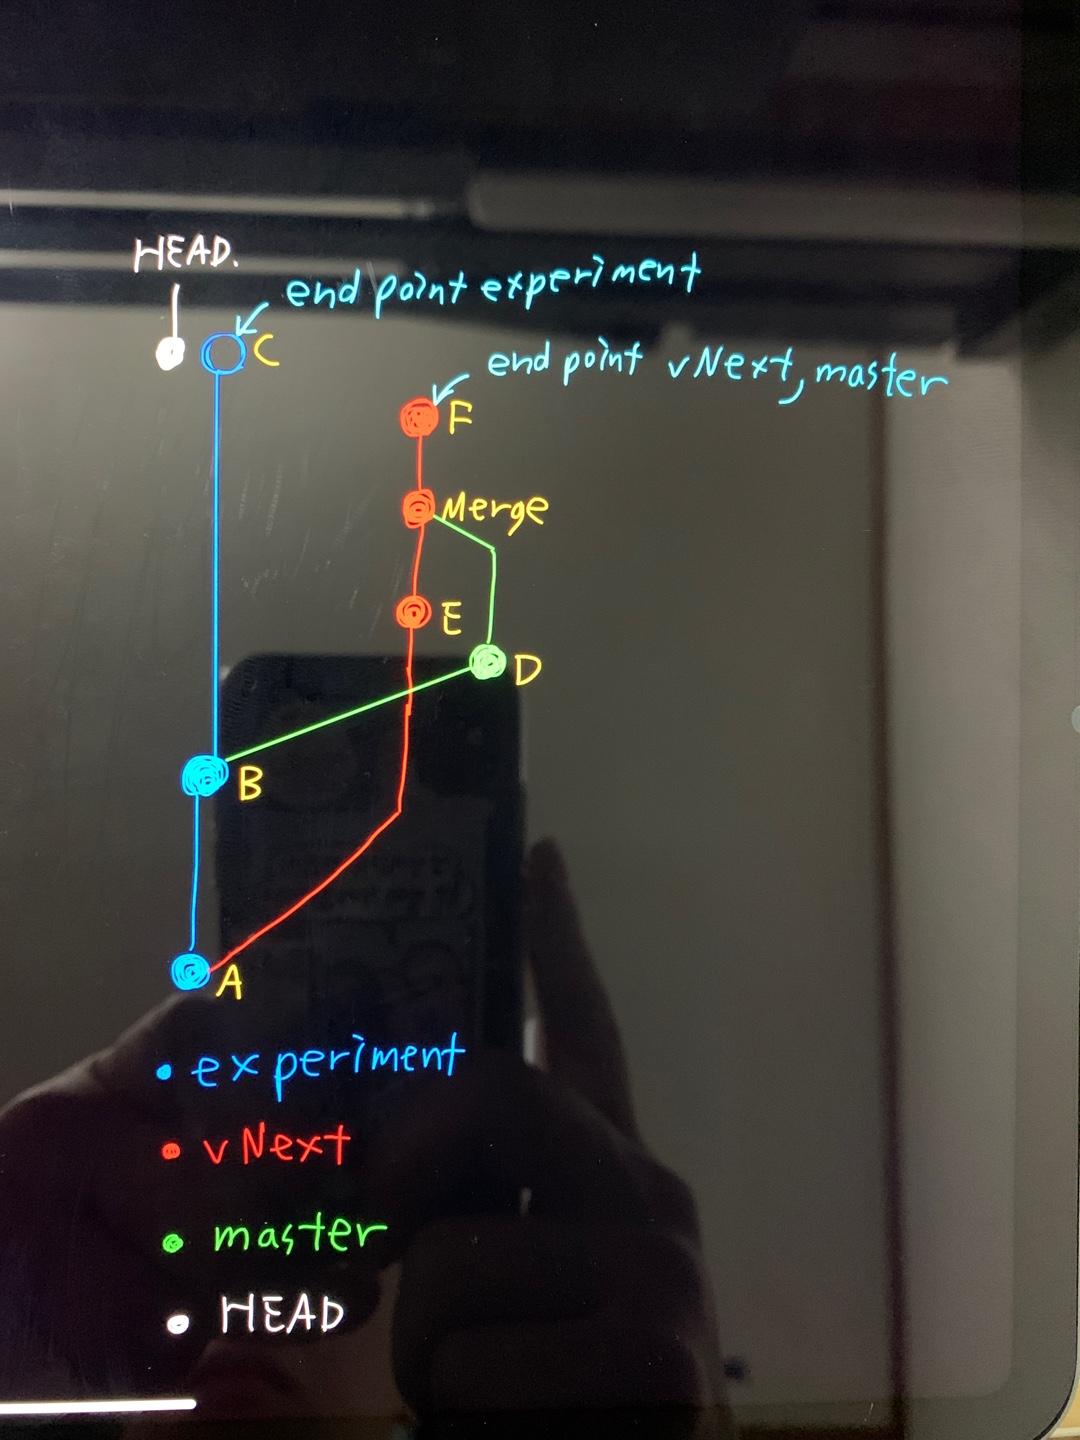 HEAD.
end point experiment
C
end point vNext, master
F
Merge
E
D
B
A
• experiment
• vNext
• master
• HEAD